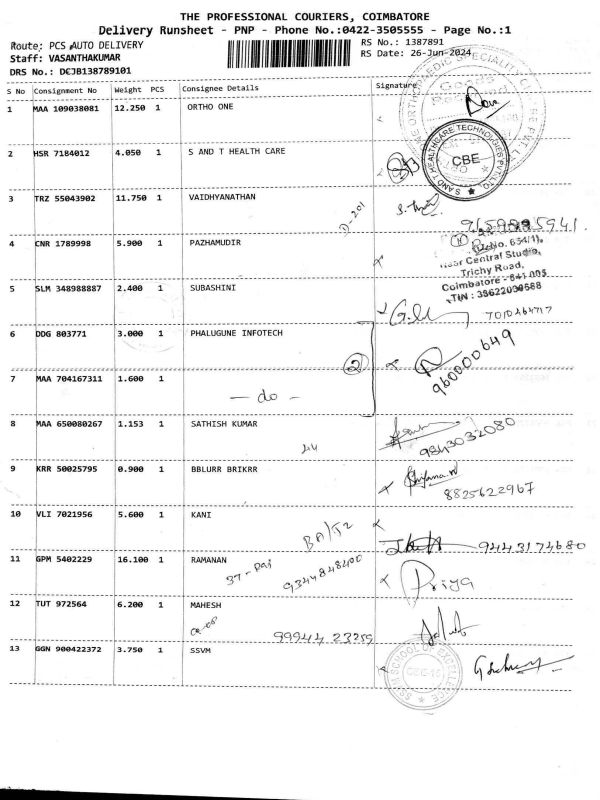 THE PROFESSIONAL COURIERS, COIMBATORE
Delivery Runsheet - PNP - Phone No.:0422-3505555 - Page No.:1
Route: PCS AUTO DELIVERY
Staff: VASANTHAKUMAR
DRS No.: DCJB138789101
RS No.: 1387891
RS Date: 26-Jun-2024
S No Consignment No Weight PCS Consignee Details Signature
1 MAA 109038081 12.250 1 ORTHO ONE
2 HSR 7184012 4.050 1 S AND T HEALTH CARE
S AND T HEALTHCARE TECHNOLOGIES PVT. LTD.
CBE
3 TRZ 55043902 11.750 1 VAIDHYANATHAN
D-201
4 CNR 1789998 5.900 1 PAZHAMUDIR
No. 654/1),
Near Central Studio,
Trichy Road,
Coimbatore - 641 005
TIN : 33622030688
5 SLM 348988887 2.400 1 SUBASHINI
6 DDG 803771 3.000 1 PHALUGUNE INFOTECH
2
960000649
7 MAA 704167311 1.600 1
- do -
8 MAA 650080267 1.153 1 SATHISH KUMAR
9843032080
9 KRR 50025795 0.900 1 BBLURR BRIKRR
8825622967
10 VLI 7021956 5.600 1 KANI
9443174680
11 GPM 5402229 16.100 1 RAMANAN
9344848400
Priya
12 TUT 972564 6.200 1 MAHESH
99944 23259
13 GGN 900422372 3.750 1 SSVM
SSVM SCHOOL OF EXCELLENCE